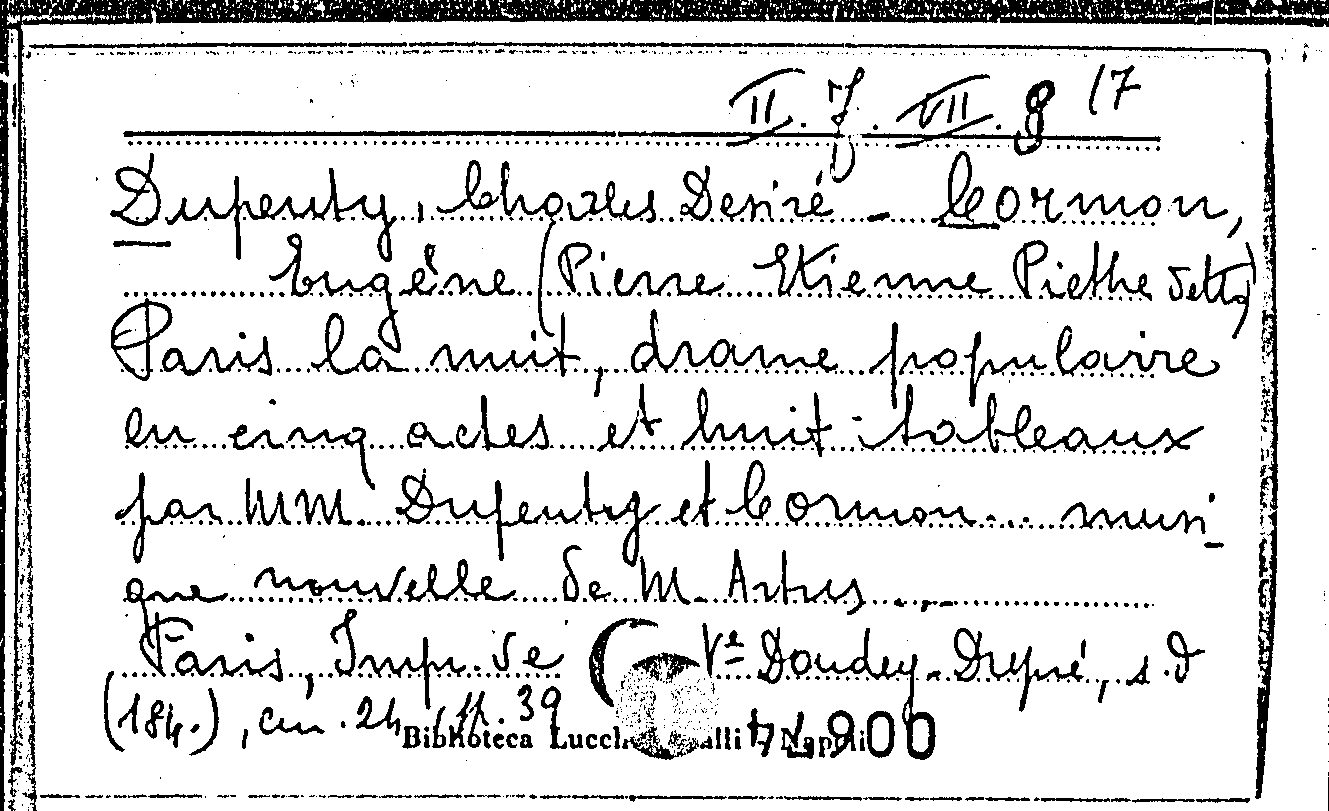 II. J. VII. 8 (7
Dupeuty, Charles Desiré - Cormon,
Eugène (Pierre Etienne Piethe detto)
Paris la nuit, drame populaire
en cinq actes et huit tableaux
par MM. Dupeuty et Cormon... musi-
que nouvelle de M. Artus...
Paris, Imp. de Vᵉ Doudey-Dupré, s.d
(184.), cm. 24, 39
Biblioteca Lucch alli Napoli 900